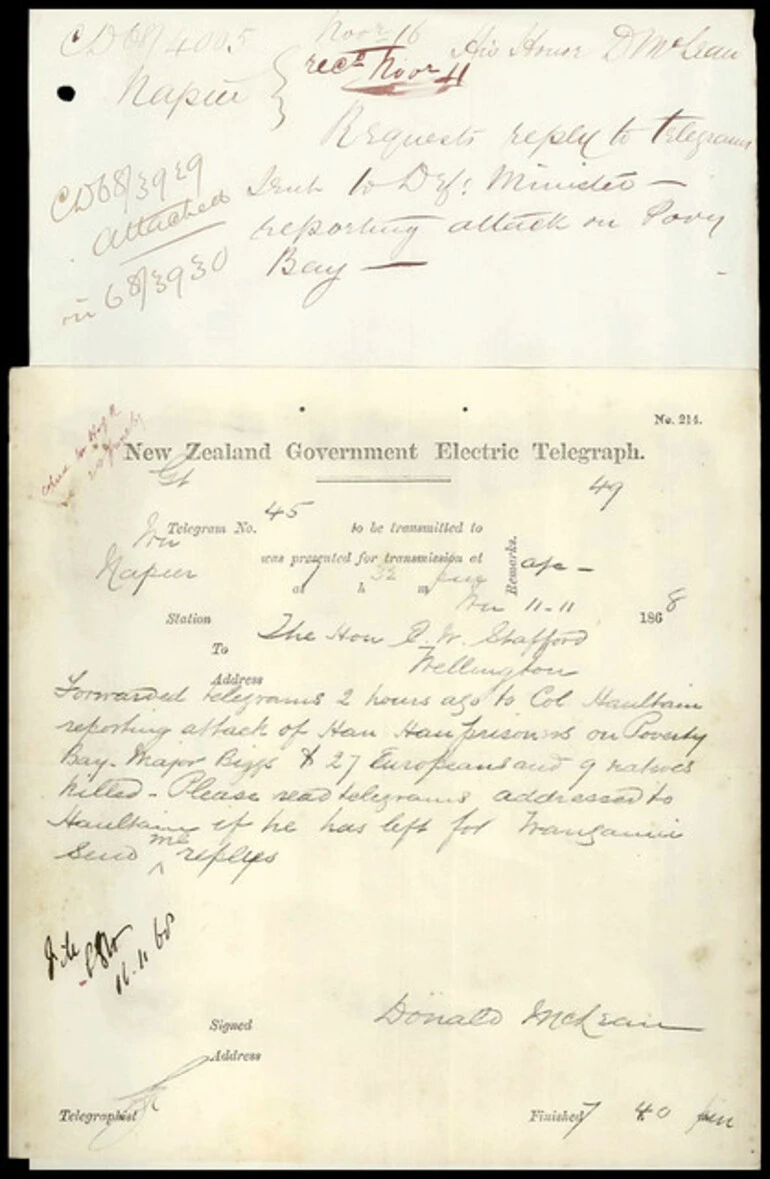 CD 68/4005
Novr 16
recd Novr 11
His Honor D McLean
Napier
Requests reply to telegrams
sent to Def: Minister —
reporting attack on Povy
Bay —
CD 68/3929
attached
in 68/3930
No. 214.
New Zealand Government Electric Telegraph.
49
Telegram No. 45 to be transmitted to
Wn
was presented for transmission at
Napier
at 7 h 32 m pm
Remarks.
Station
Wn 11-11 1868
To The Hon E. W. Stafford
Address Wellington
Forwarded telegrams 2 hours ago to Col Haultain
reporting attack of Hau Hau prisoners on Poverty
Bay. Major Biggs & 27 Europeans and 9 natives
killed - Please read telegrams addressed to
Haultain if he has left for Wanganui
Send me replies
File
EWS
11.11.68
Signed Donald McLean
Address
Telegraphist
Finished 7 40 pm